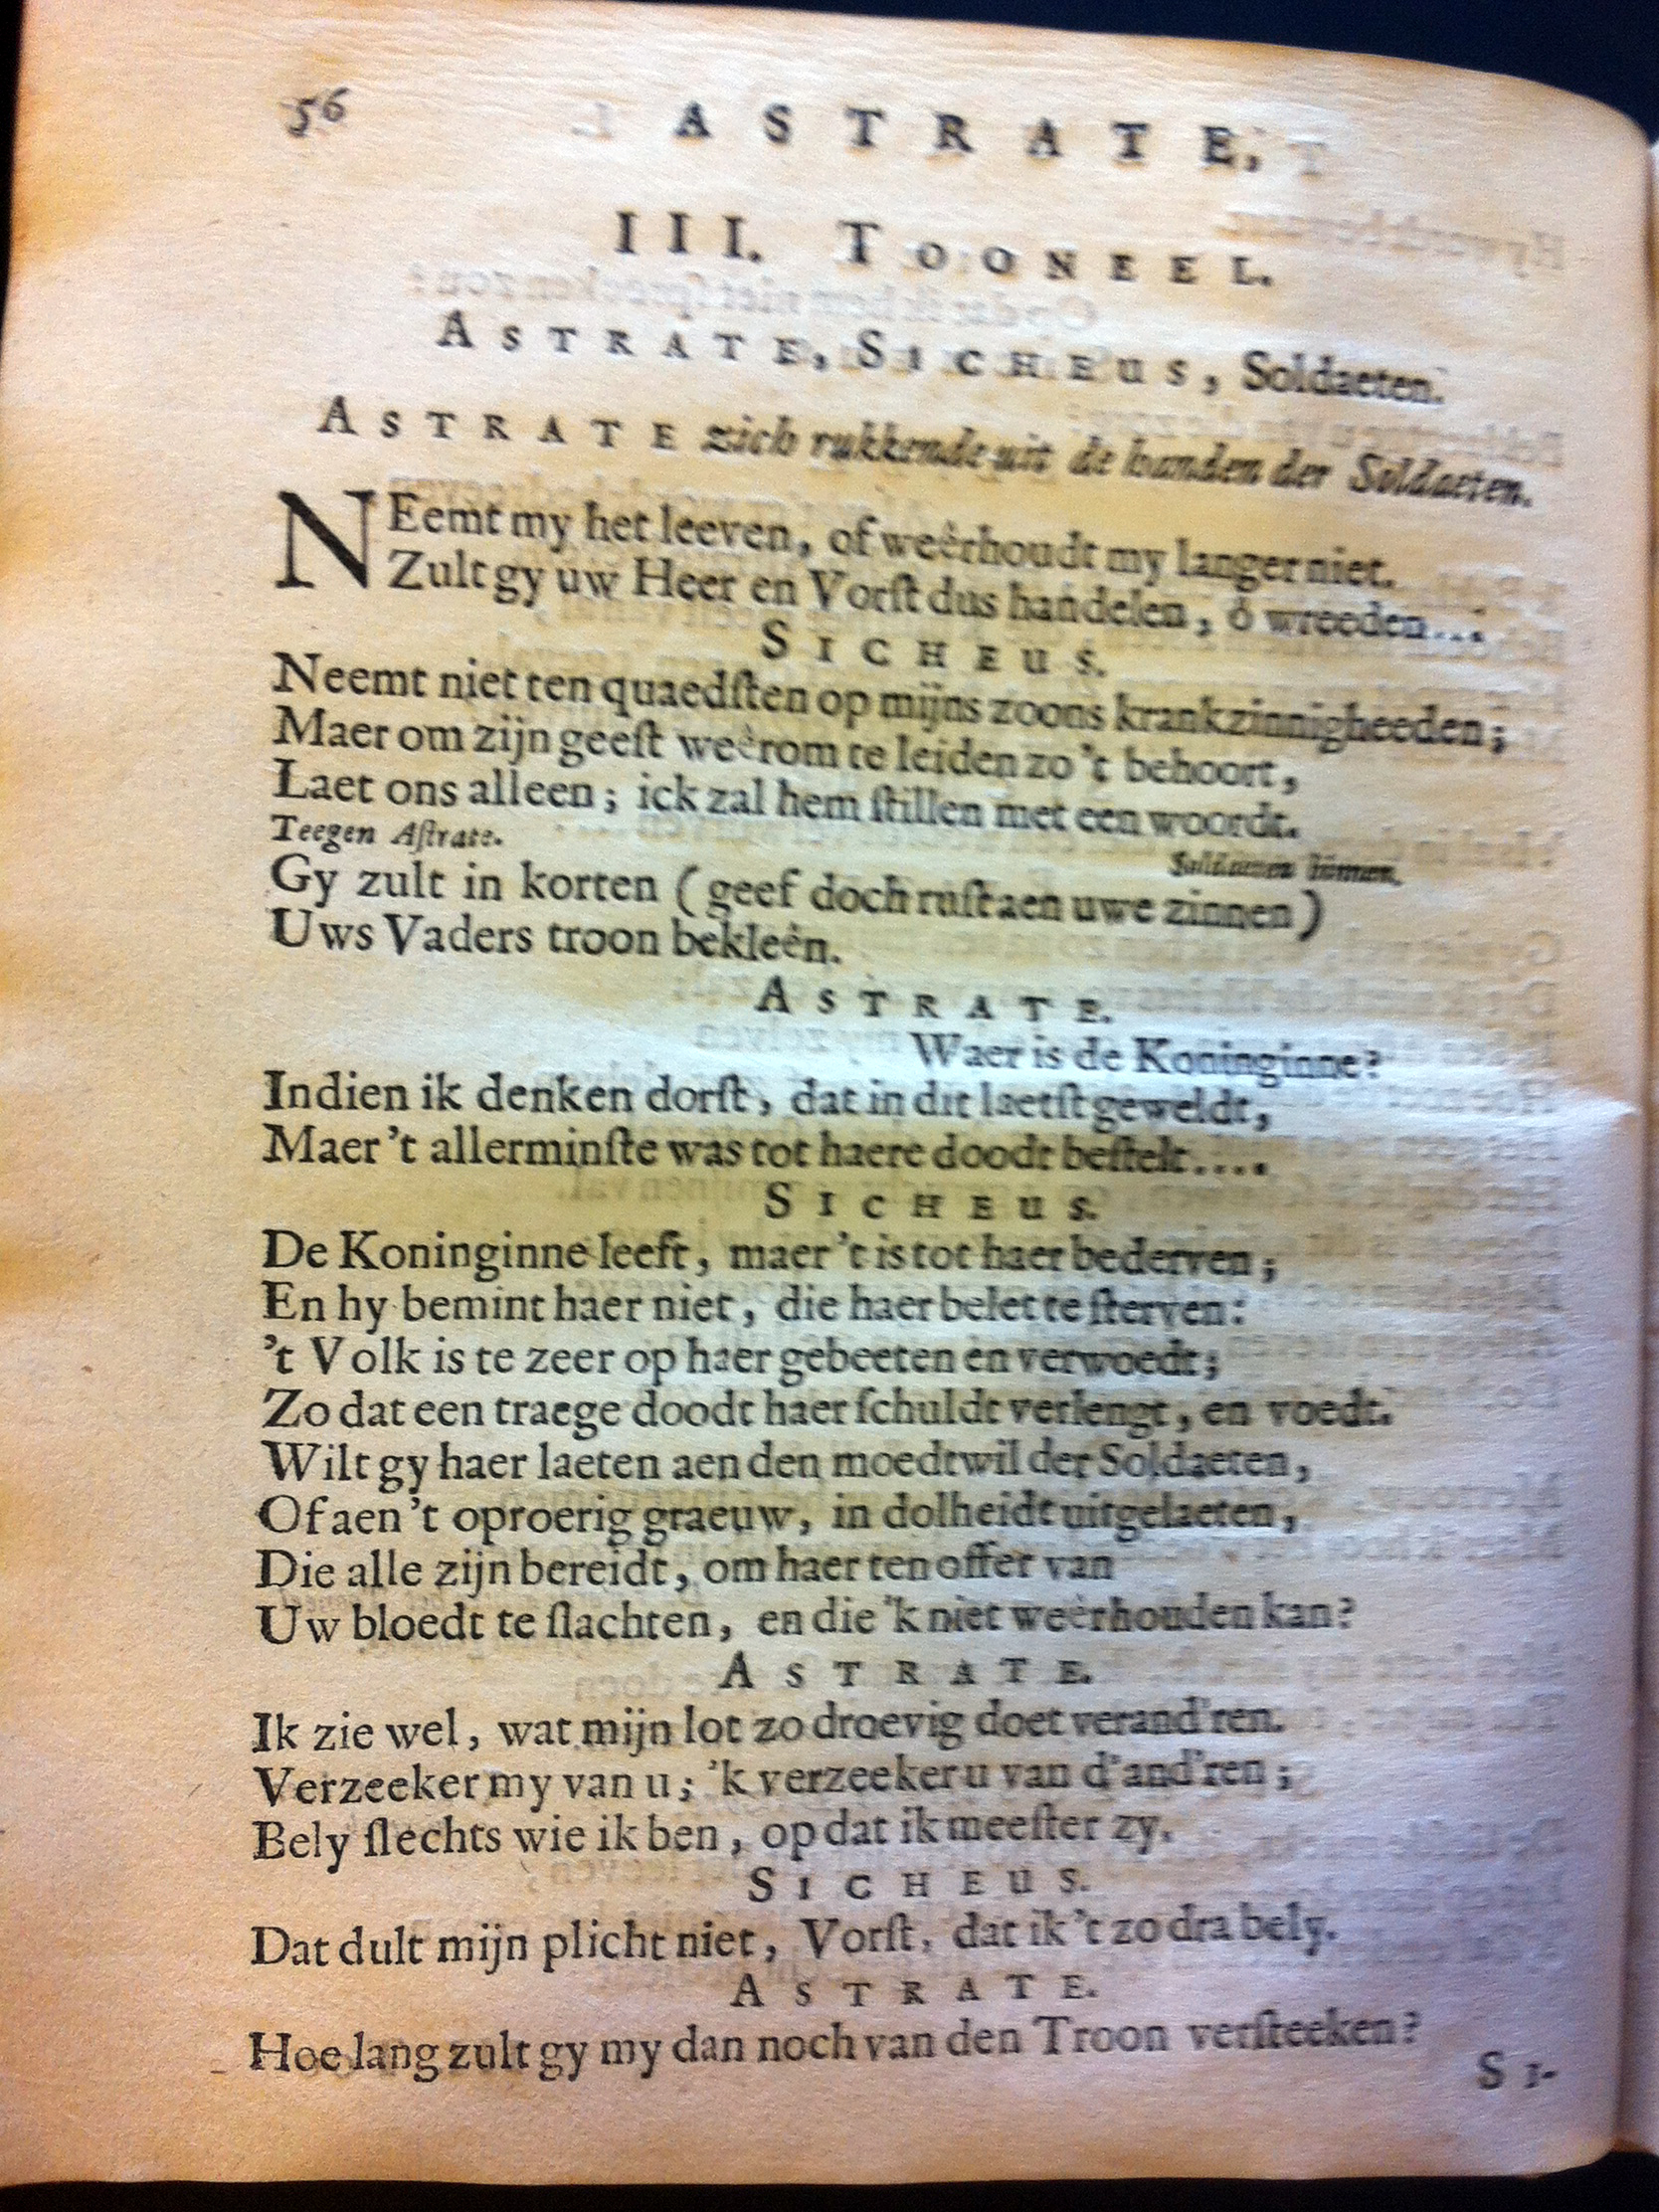 56 ASTRATE,
III. TOONEEL.
ASTRATE, SICHEUS, Soldaeten.
ASTRATE zich rukkende uit de handen der Soldaeten.
NEemt my het leeven, of weêrhoudt my langer niet.
Zult gy uw Heer en Vorſt dus handelen, ô wreeden....
SICHEUS.
Neemt niet ten quaedſten op mijns zoons krankzinnigheeden;
Maer om zijn geeſt weêrom te leiden zo 't behoort,
Laet ons alleen; ick zal hem ſtillen met een woordt.
Teegen Aſtrate.
Soldaeten binnen.
Gy zult in korten (geef doch ruſt aen uwe zinnen)
Uws Vaders troon bekleên.
ASTRATE.
Waer is de Koninginne?
Indien ik denken dorſt, dat in dit laetſt geweldt,
Maer 't allerminſte was tot haere doodt beſtelt....
SICHEUS.
De Koninginne leeft, maer 't is tot haer bederven;
En hy bemint haer niet, die haer belet te ſterven:
't Volk is te zeer op haer gebeeten en verwoedt;
Zo dat een traege doodt haer ſchuldt verlengt, en voedt.
Wilt gy haer laeten aen den moedtwil der Soldaeten,
Of aen 't oproerig graeuw, in dolheidt uitgelaeten,
Die alle zijn bereidt, om haer ten offer van
Uw bloedt te ſlachten, en die 'k niet weêrhouden kan?
ASTRATE.
Ik zie wel, wat mijn lot zo droevig doet verand'ren.
Verzeeker my van u; 'k verzeeker u van d'and'ren;
Bely ſlechts wie ik ben, op dat ik meeſter zy.
SICHEUS.
Dat dult mijn plicht niet, Vorſt, dat ik 't zo dra bely.
ASTRATE.
Hoe lang zult gy my dan noch van den Troon verſteeken?
SI-